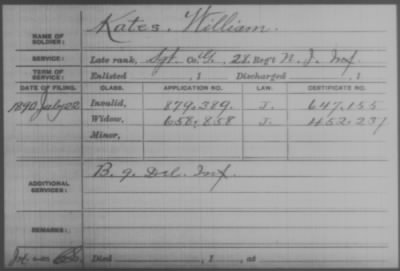 Kates, William.
NAME OF SOLDIER:
SERVICE: Late rank, Sgt. Co. G, 28 Reg't N. J. Inf.
TERM OF SERVICE: Enlisted , 1 Discharged , 1
DATE OF FILING. CLASS. APPLICATION NO. LAW. CERTIFICATE NO.
1890 July 22 Invalid, 879.389. J. 647.155
Widow, 658.858 J. 452.231
Minor,
B. 9. Del. Inf.
ADDITIONAL SERVICES:
REMARKS:
Died , 1 , at